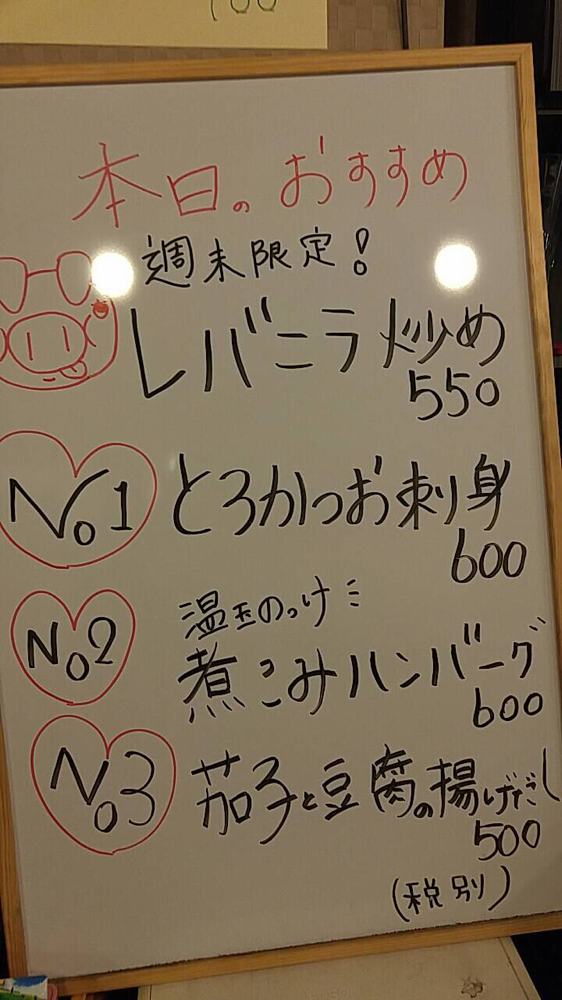 100
本日のおすすめ
週末限定!
レバニラ炒め
550
No1 とろかつお刺身
600
温玉のっけ
No2 煮こみハンバーグ
600
No3 茄子と豆腐の揚げだし
500
(税別)